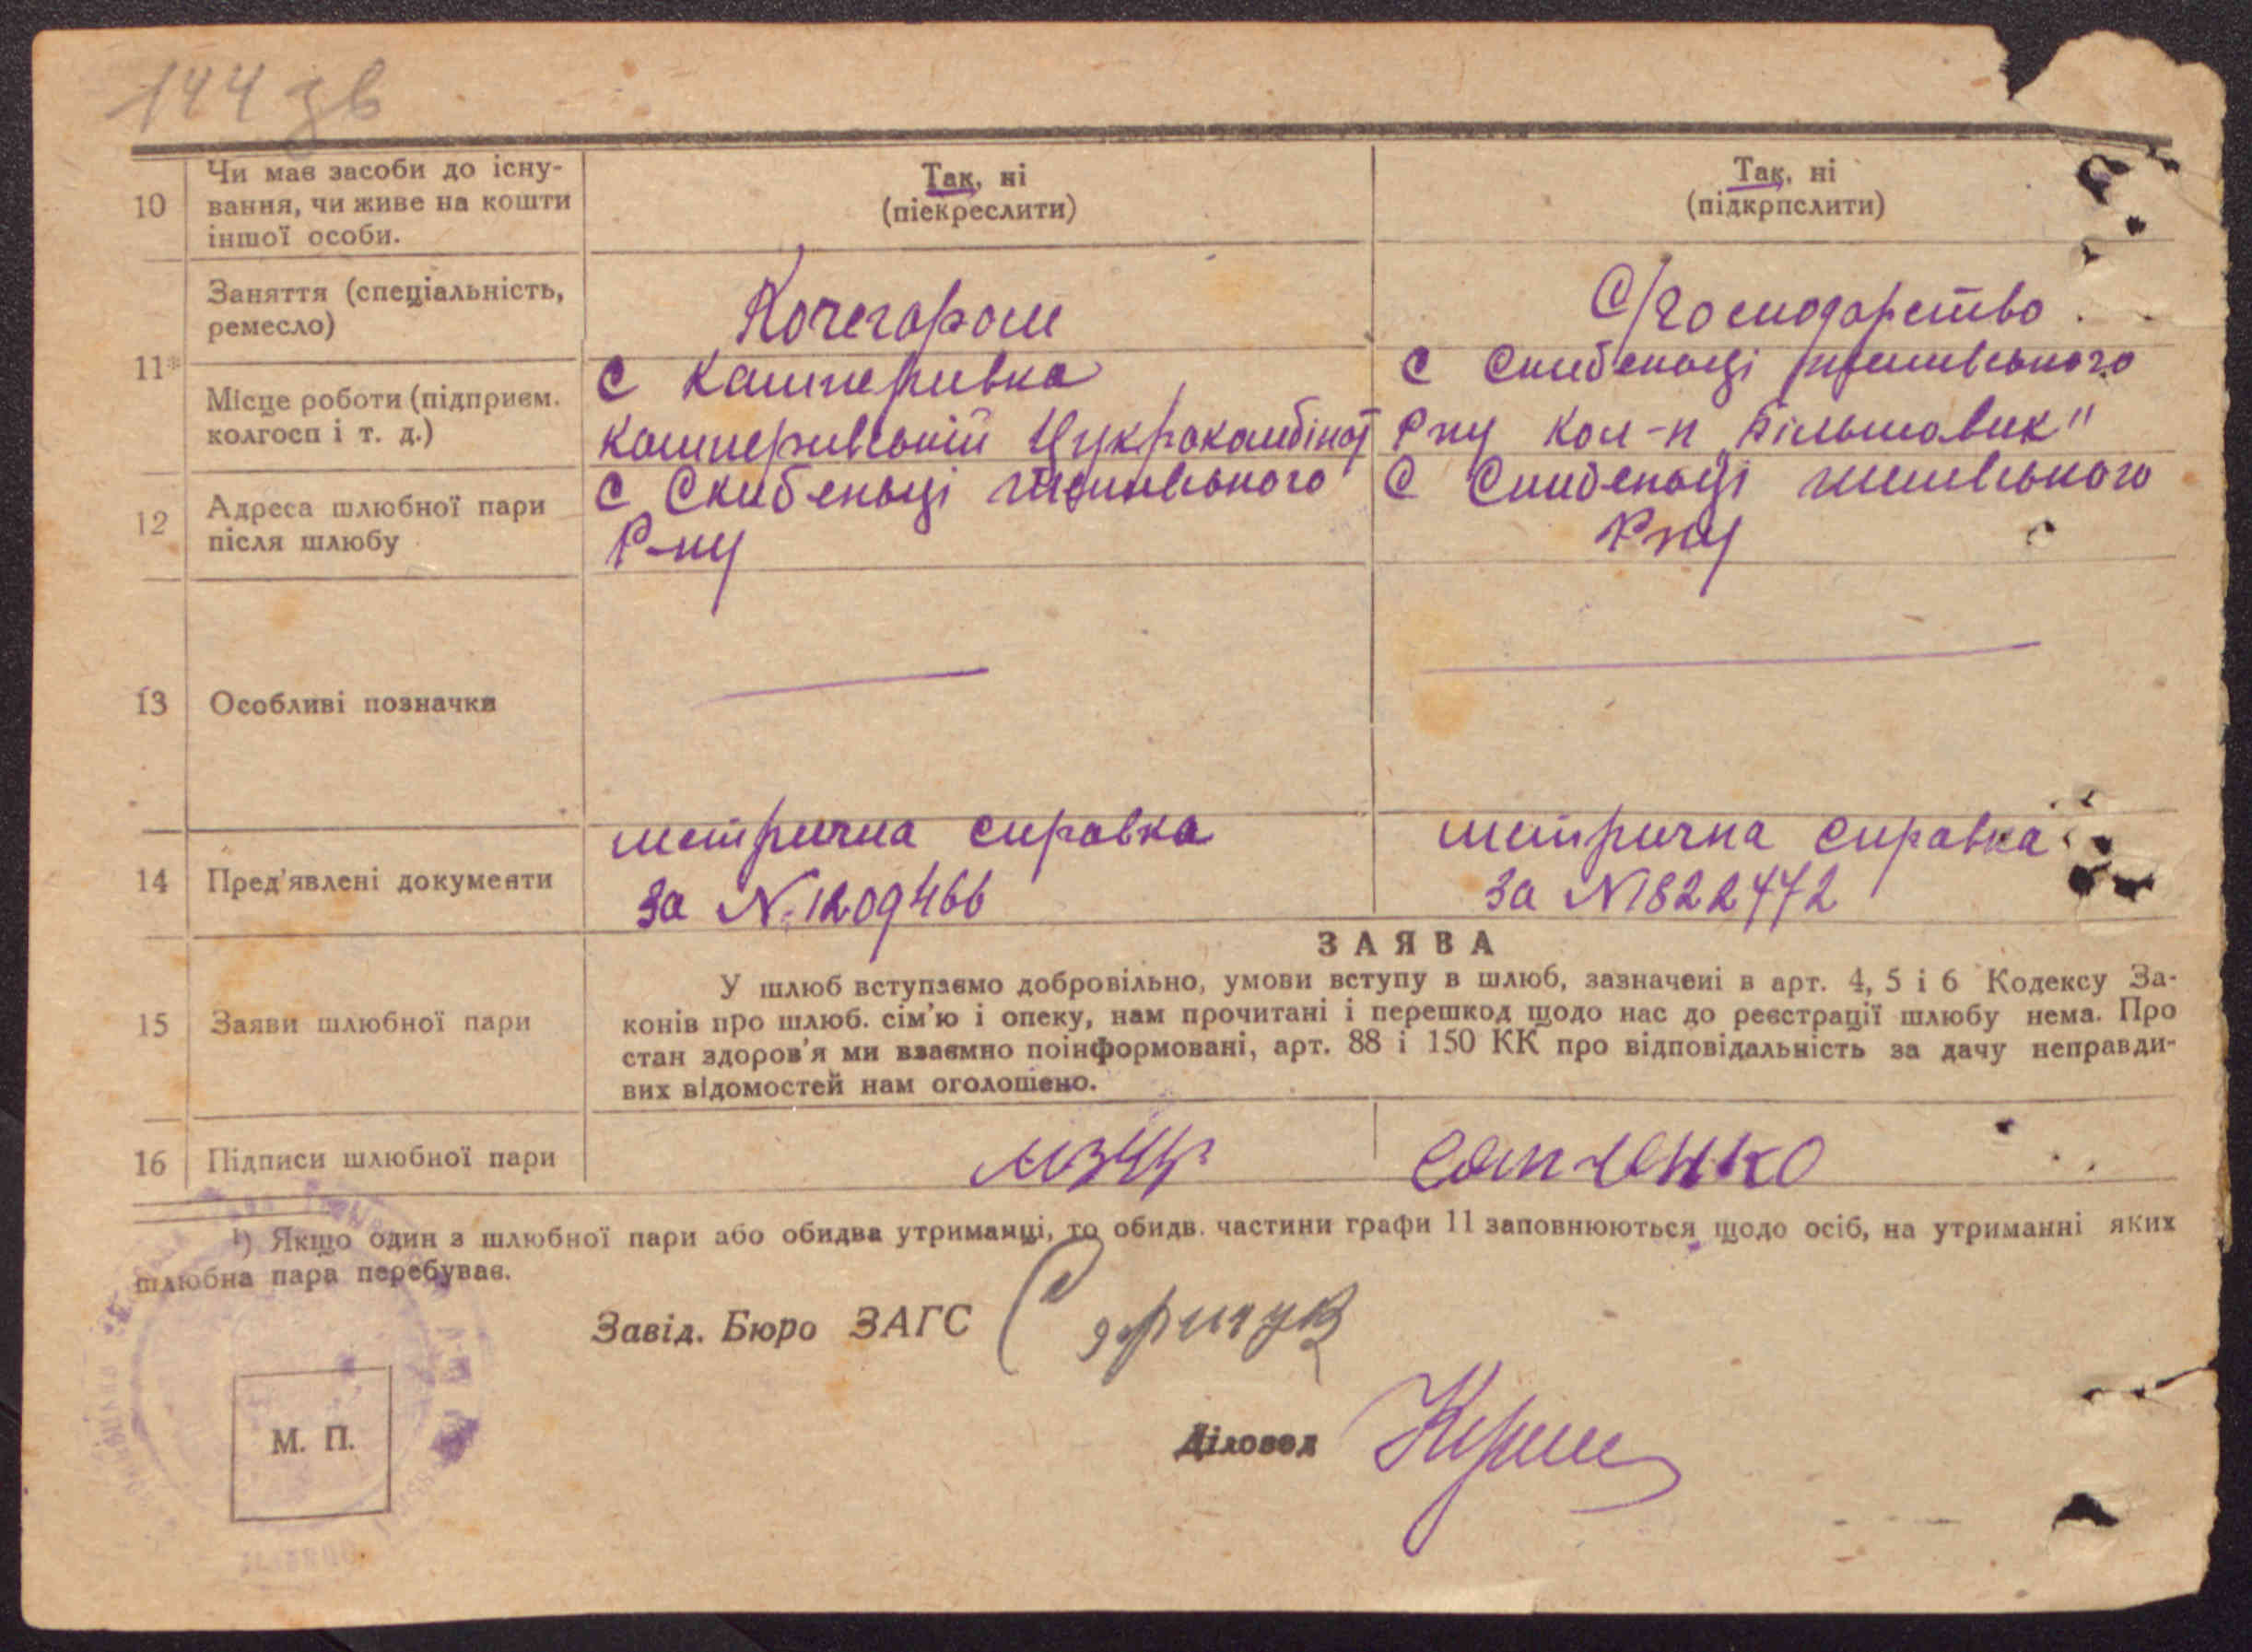 144 зв
10
Чи має засоби до існу-
вання, чи живе на кошти
іншої особи.
Так, ні
(піекреслити)
Так, ні
(підкрпслити)
11*
Заняття (спеціальність,
ремесло)
Кочегаром
С/господарство
Місце роботи (підприєм.
колгосп і т. д.)
с Кашперивка
Кашперивській Цукрокомбінат
с Скибенці
Рну Кол-п „Більшовик"
12
Адреса шлюбної пари
після шлюбу
с Скибеньці
Р-ну
с Скибенці
Рну
13
Особливі позначки
14
Пред'явлені документи
метрична справка
За N. 1209466
метрична справка
За N1822472
15
Заяви шлюбної пари
ЗАЯВА
У шлюб вступаємо добровільно, умови вступу в шлюб, зазначені в арт. 4, 5 і 6 Кодексу За-
конів про шлюб. сім'ю і опеку, нам прочитані і перешкод щодо нас до реєстрації шлюбу нема. Про
стан здоров'я ми взаємно поінформовані, арт. 88 і 150 КК про відповідальність за дачу неправди-
вих відомостей нам оголошено.
16
Підписи шлюбної пари
¹) Якщо один з шлюбної пари або обидва утриманці, то обидв. частини графи 11 заповнюються щодо осіб, на утриманні яких
шлюбна пара перебуває.
Завід. Бюро ЗАГС
Діловод
М. П.